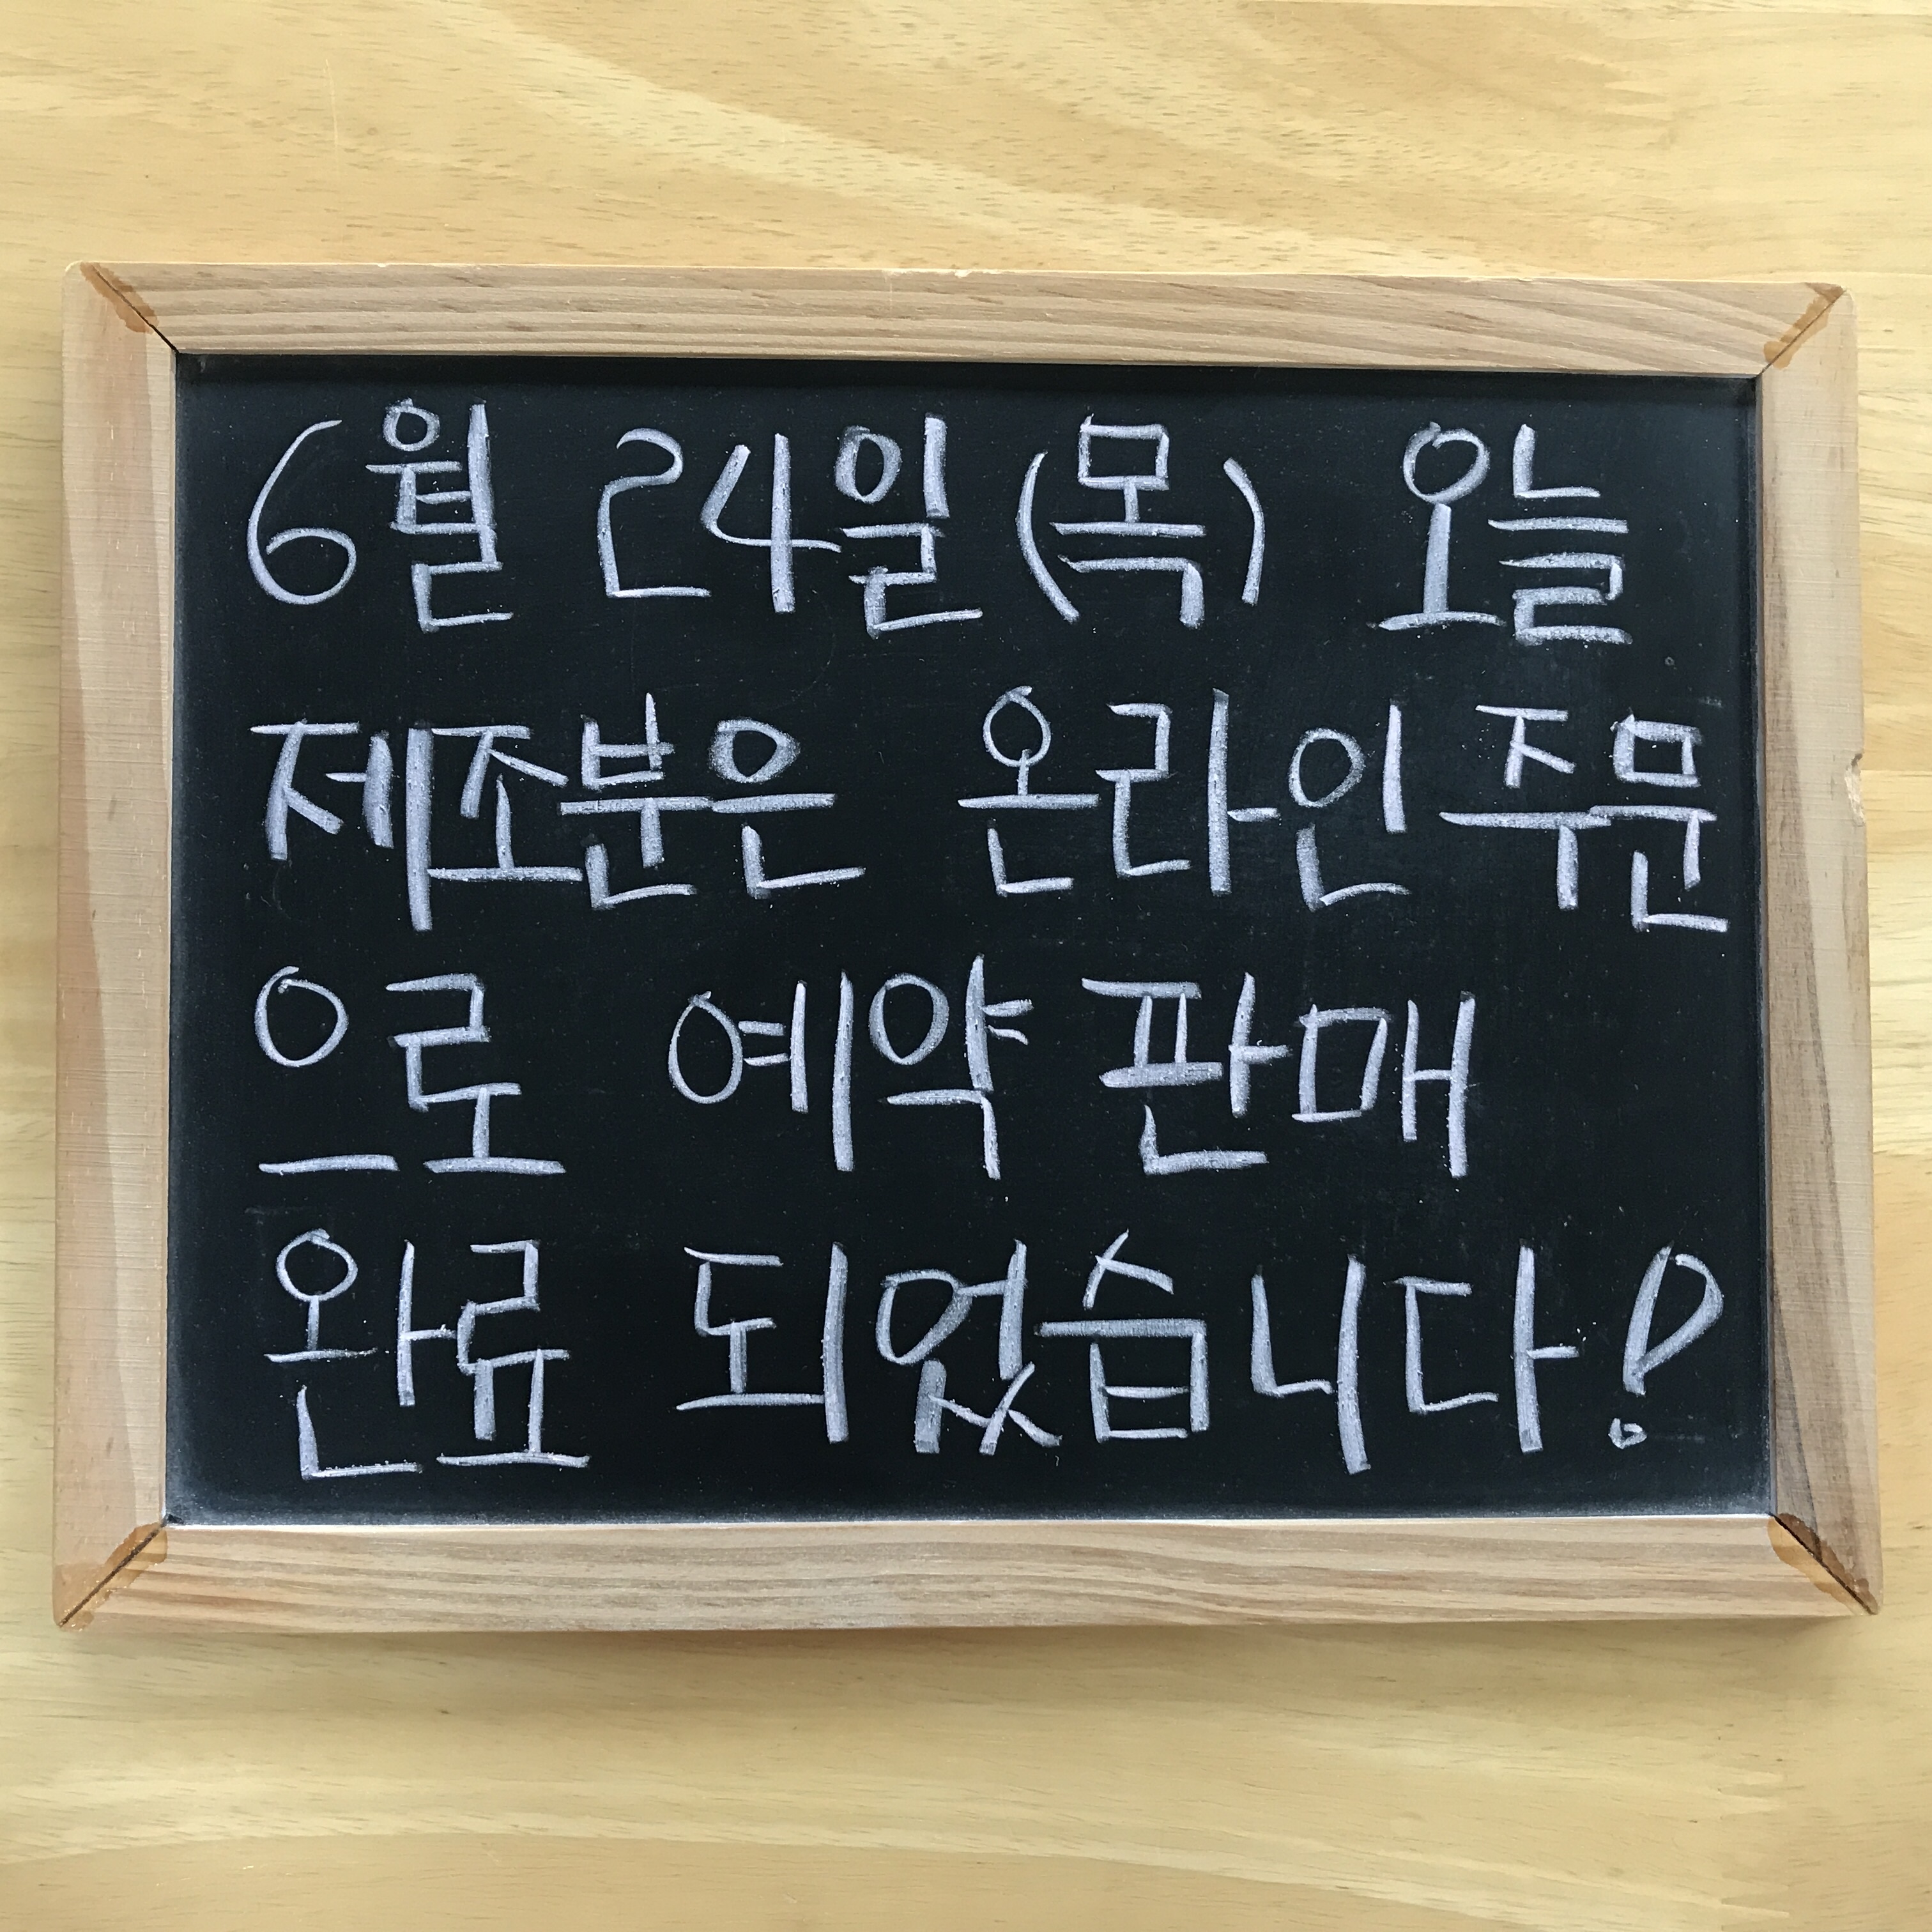 6월 24일(목) 오늘
제조분은 온라인주문
으로 예약 판매
완료 되었습니다!